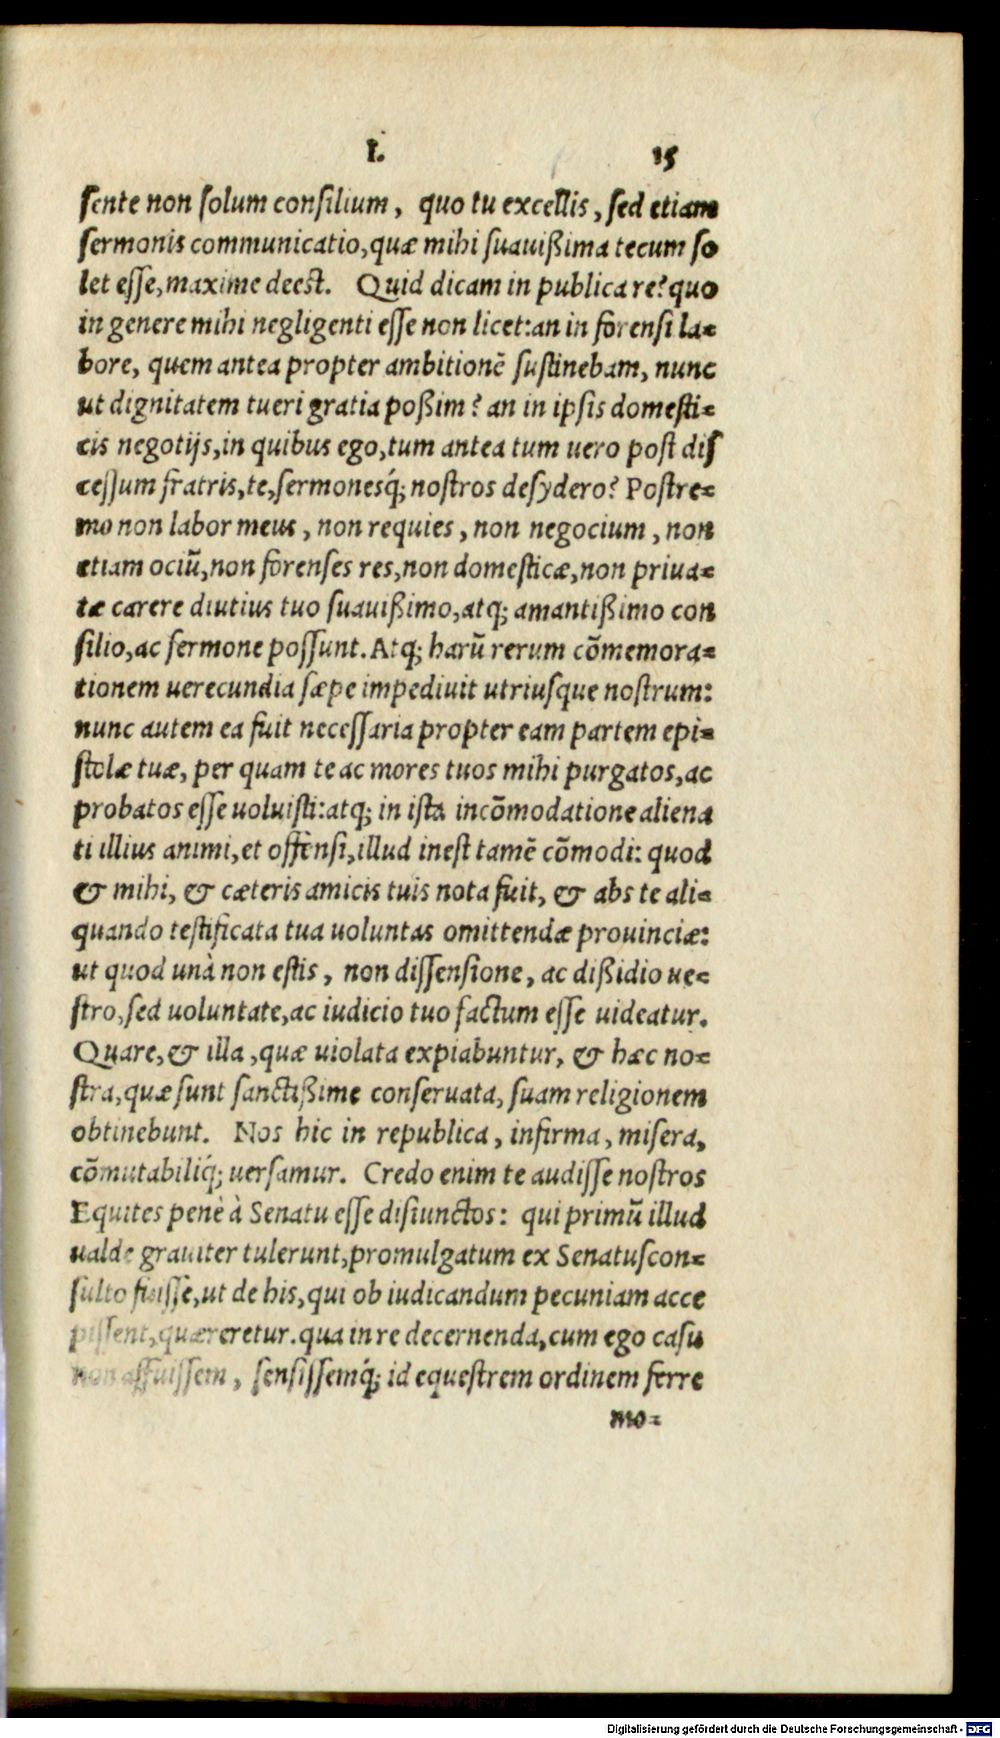 I. 15
sente non solum consilium, quo tu excellis, sed etiam
sermonis communicatio, quæ mihi suauißima tecum so
let esse, maxime deest. Quid dicam in publica re? quo
in genere mihi negligenti esse non licet: an in forensi la=
bore, quem antea propter ambitionē sustinebam, nunc
ut dignitatem tueri gratia poßim? an in ipsis domesti=
cis negotijs, in quibus ego, tum antea tum uero post dis
cessum fratris, te, sermonesq́; nostros desydero? Postre=
mo non labor meus, non requies, non negocium, non
etiam ociū, non forenses res, non domesticæ, non priua=
tæ carere diutius tuo suauißimo, atq; amantißimo con
silio, ac sermone possunt. Atq; harū rerum cōmemora=
tionem uerecundia sæpe impediuit utriusque nostrum:
nunc autem ea fuit necessaria propter eam partem epi=
stolæ tuæ, per quam te ac mores tuos mihi purgatos, ac
probatos esse uoluisti: atq; in ista incōmodatione aliena
ti illius animi, et offensi, illud inest tamē cōmodi: quod
& mihi, & cæteris amicis tuis nota fuit, & abs te ali=
quando testificata tua uoluntas omittendæ prouinciæ:
ut quod unà non estis, non dissensione, ac dißidio ue=
stro, sed uoluntate, ac iudicio tuo factum esse uideatur.
Quare, & illa, quæ uiolata expiabuntur, & hæc no=
stra, quæ sunt sanctißime conseruata, suam religionem
obtinebunt. Nos hic in republica, infirma, misera,
cōmutabiliq́; uersamur. Credo enim te audisse nostros
Equites penè à Senatu esse disiunctos: qui primū illud
ualde grauiter tulerunt, promulgatum ex Senatuscon=
sulto fuisse, ut de his, qui ob iudicandum pecuniam acce
pissent, quæreretur. qua in re decernenda, cum ego casu
non affuissem, sensissemq́; id equestrem ordinem ferre
mo=
Digitalisierung gefördert durch die Deutsche Forschungsgemeinschaft - DFG